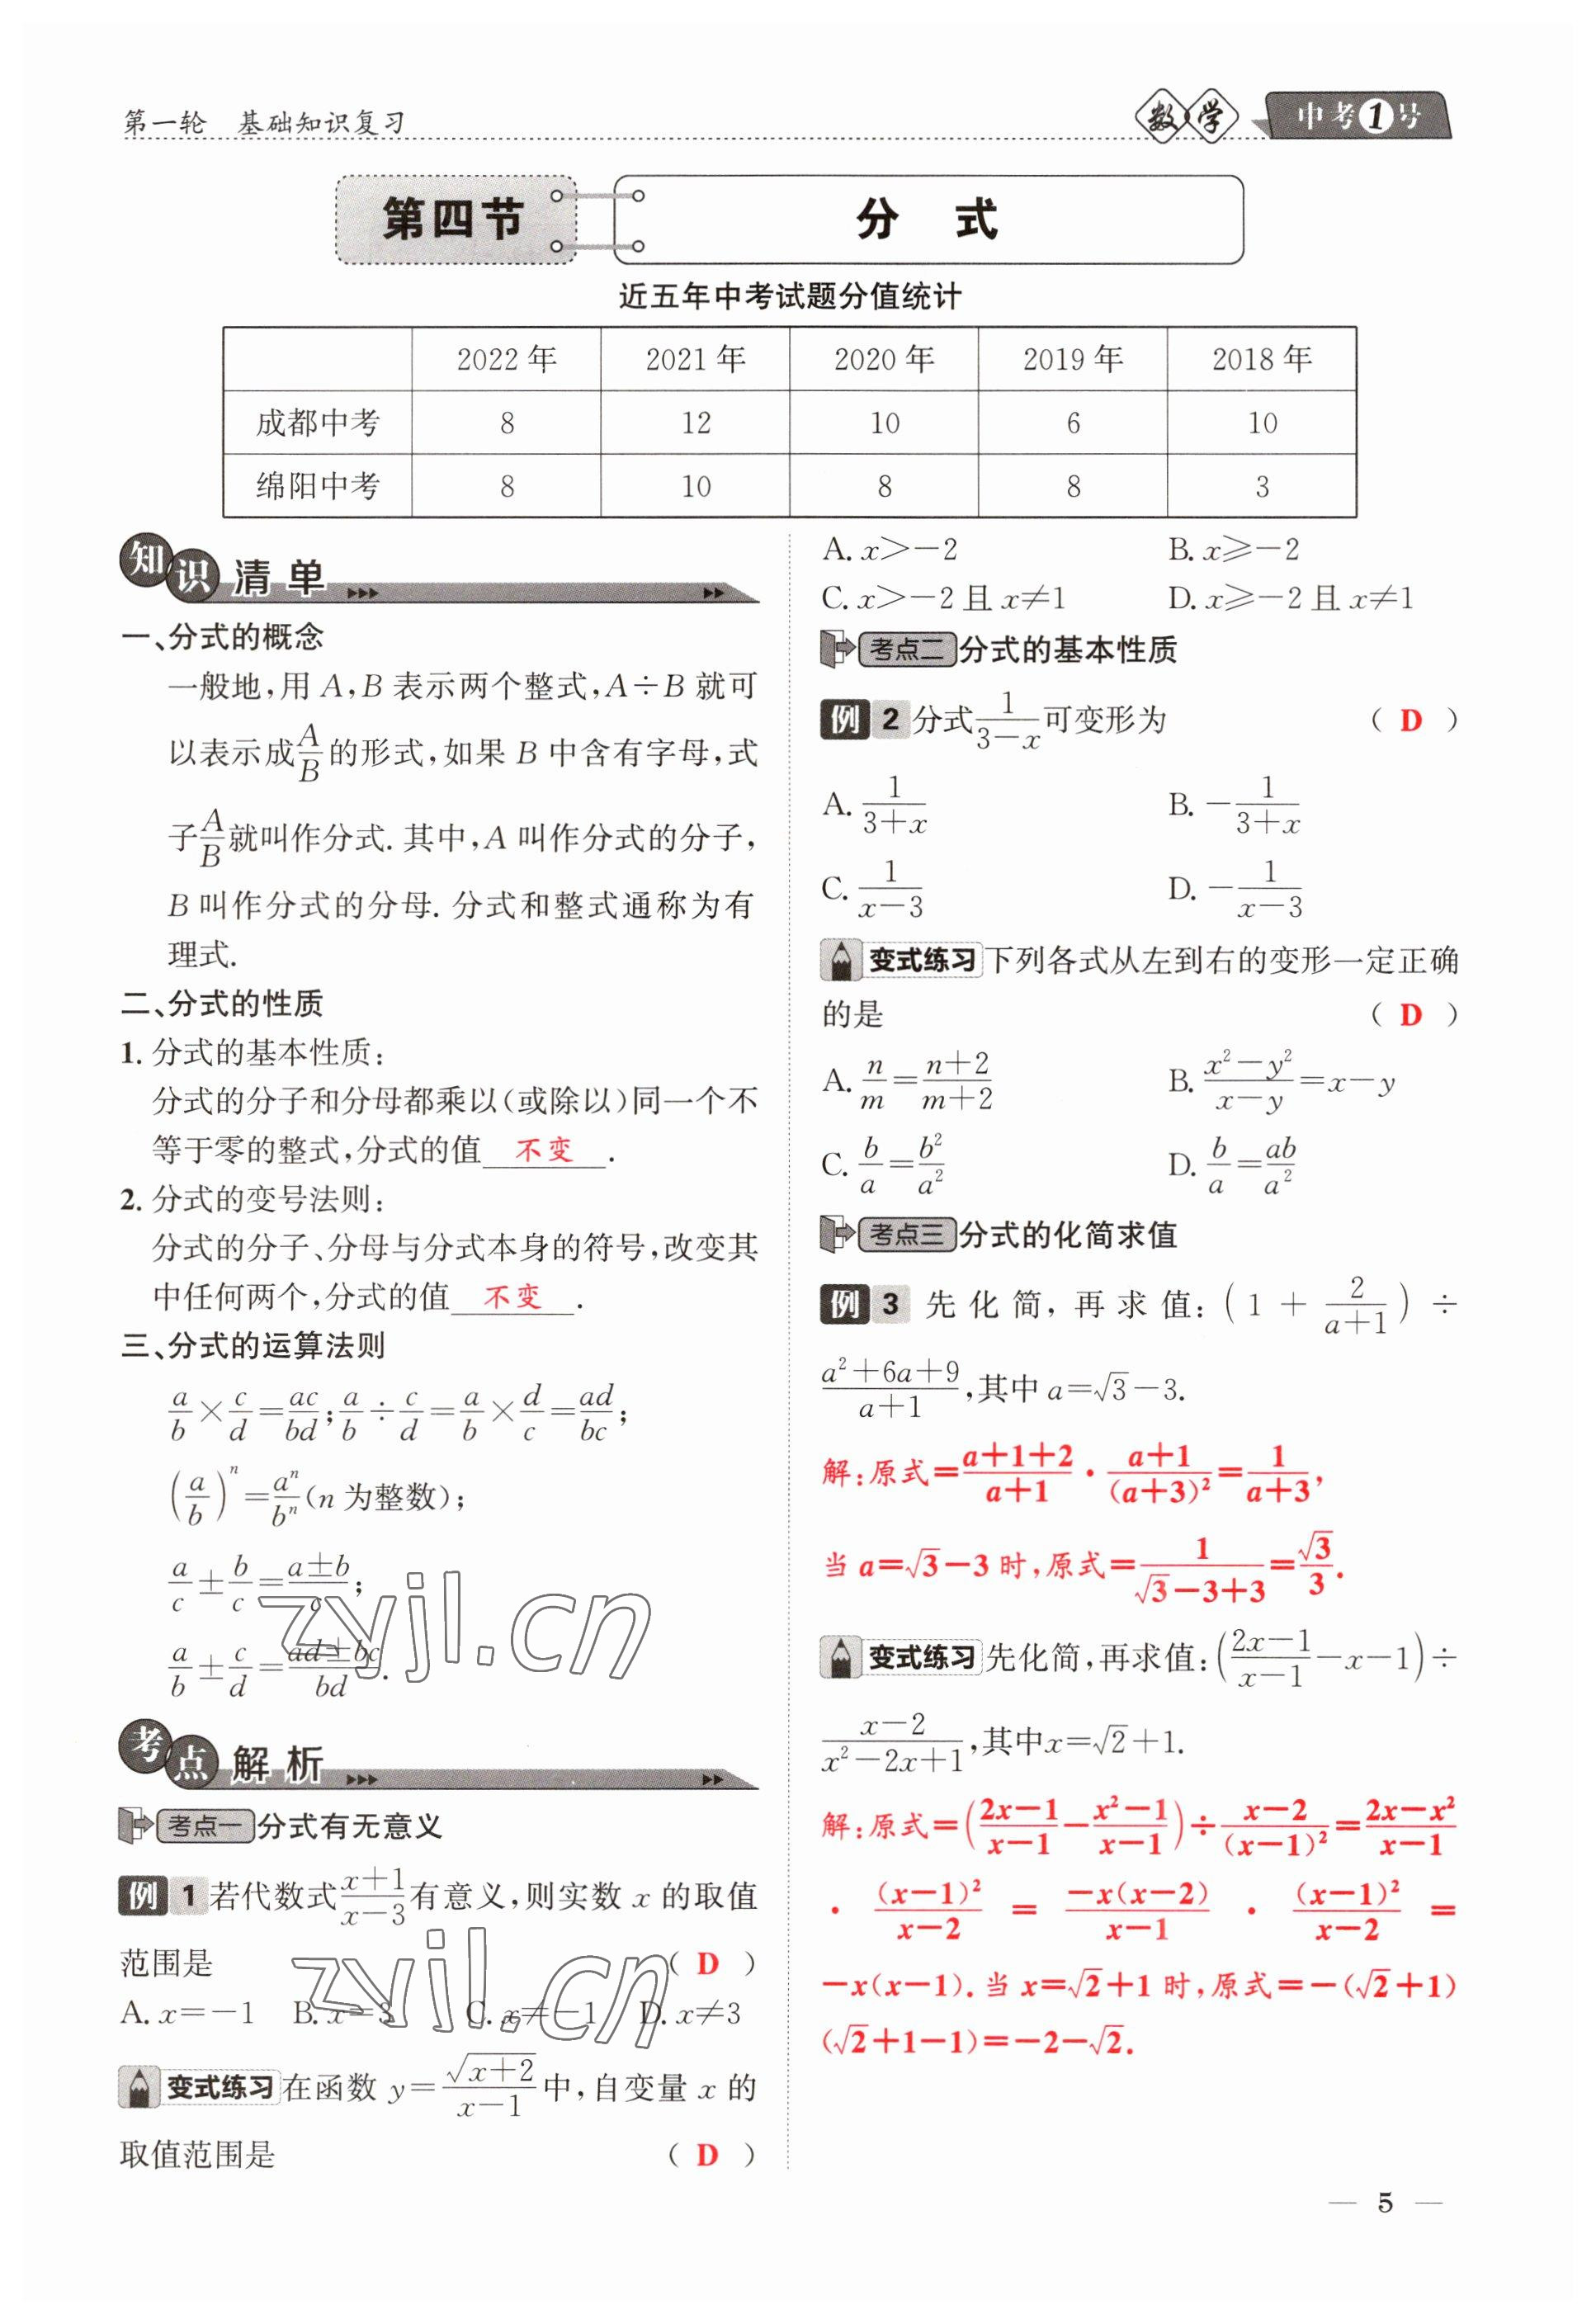 第一轮　基础知识复习
数学　中考1号
第四节　分　式
近五年中考试题分值统计
　　2022 年　2021 年　2020 年　2019 年　2018 年
成都中考　8　12　10　6　10
绵阳中考　8　10　8　8　3
知识清单
一、分式的概念
一般地,用 A,B 表示两个整式,A÷B 就可
以表示成A/B的形式,如果 B 中含有字母,式
子A/B就叫作分式. 其中,A 叫作分式的分子,
B 叫作分式的分母. 分式和整式通称为有
理式.
二、分式的性质
1. 分式的基本性质:
分式的分子和分母都乘以(或除以)同一个不
等于零的整式,分式的值 不变 .
2. 分式的变号法则:
分式的分子、分母与分式本身的符号,改变其
中任何两个,分式的值 不变 .
三、分式的运算法则
a/b×c/d=ac/bd;a/b÷c/d=a/b×d/c=ad/bc;
(a/b)^n=a^n/b^n(n 为整数);
a/c±b/c=(a±b)/c;
a/b±c/d=(ad±bc)/bd.
zyjl.cn
考点解析
考点一 分式有无意义
例 1 若代数式(x+1)/(x-3)有意义,则实数 x 的取值
范围是　( D )
A. x=-1　B. x=3　C. x≠-1　D. x≠3
zyjl.cn
变式练习 在函数 y=√(x+2)/(x-1)中,自变量 x 的
取值范围是　( D )
A. x>-2　B. x⩾-2
C. x>-2 且 x≠1　D. x⩾-2 且 x≠1
考点二 分式的基本性质
例 2 分式1/(3-x)可变形为　( D )
A. 1/(3+x)　B. -1/(3+x)
C. 1/(x-3)　D. -1/(x-3)
变式练习 下列各式从左到右的变形一定正确
的是　( D )
A. n/m=(n+2)/(m+2)　B. (x²-y²)/(x-y)=x-y
C. b/a=b²/a²　D. b/a=ab/a²
考点三 分式的化简求值
例 3 先化简,再求值:(1+2/(a+1))÷
(a²+6a+9)/(a+1),其中 a=√3-3.
解:原式=(a+1+2)/(a+1)·(a+1)/(a+3)²=1/(a+3),
当 a=√3-3 时,原式=1/(√3-3+3)=√3/3.
变式练习 先化简,再求值:((2x-1)/(x-1)-x-1)÷
(x-2)/(x²-2x+1),其中x=√2+1.
解:原式=((2x-1)/(x-1)-(x²-1)/(x-1))÷(x-2)/(x-1)²=(2x-x²)/(x-1)
·(x-1)²/(x-2)=-x(x-2)/(x-1)·(x-1)²/(x-2)=
-x(x-1). 当 x=√2+1 时,原式=-(√2+1)
(√2+1-1)=-2-√2.
— 5 —